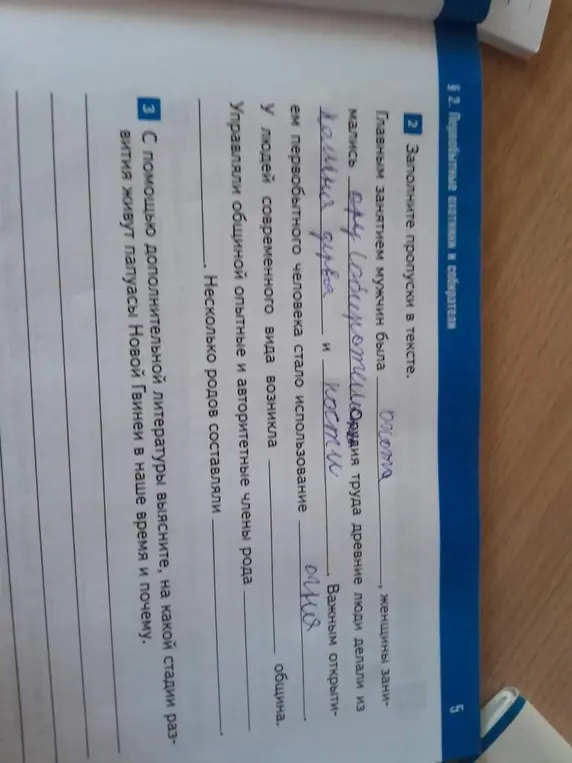 § 2. Первобытные охотники и собиратели 5
2 Заполните пропуски в тексте.
Главным занятием мужчин была охота, женщины зани-
мались Орудия труда древние люди делали из
камня дерева и кости. Важным открыти-
ем первобытного человека стало использование огня.
У людей современного вида возникла община.
Управляли общиной опытные и авторитетные члены рода
. Несколько родов составляли .
3 С помощью дополнительной литературы выясните, на какой стадии раз-
вития живут папуасы Новой Гвинеи в наше время и почему.